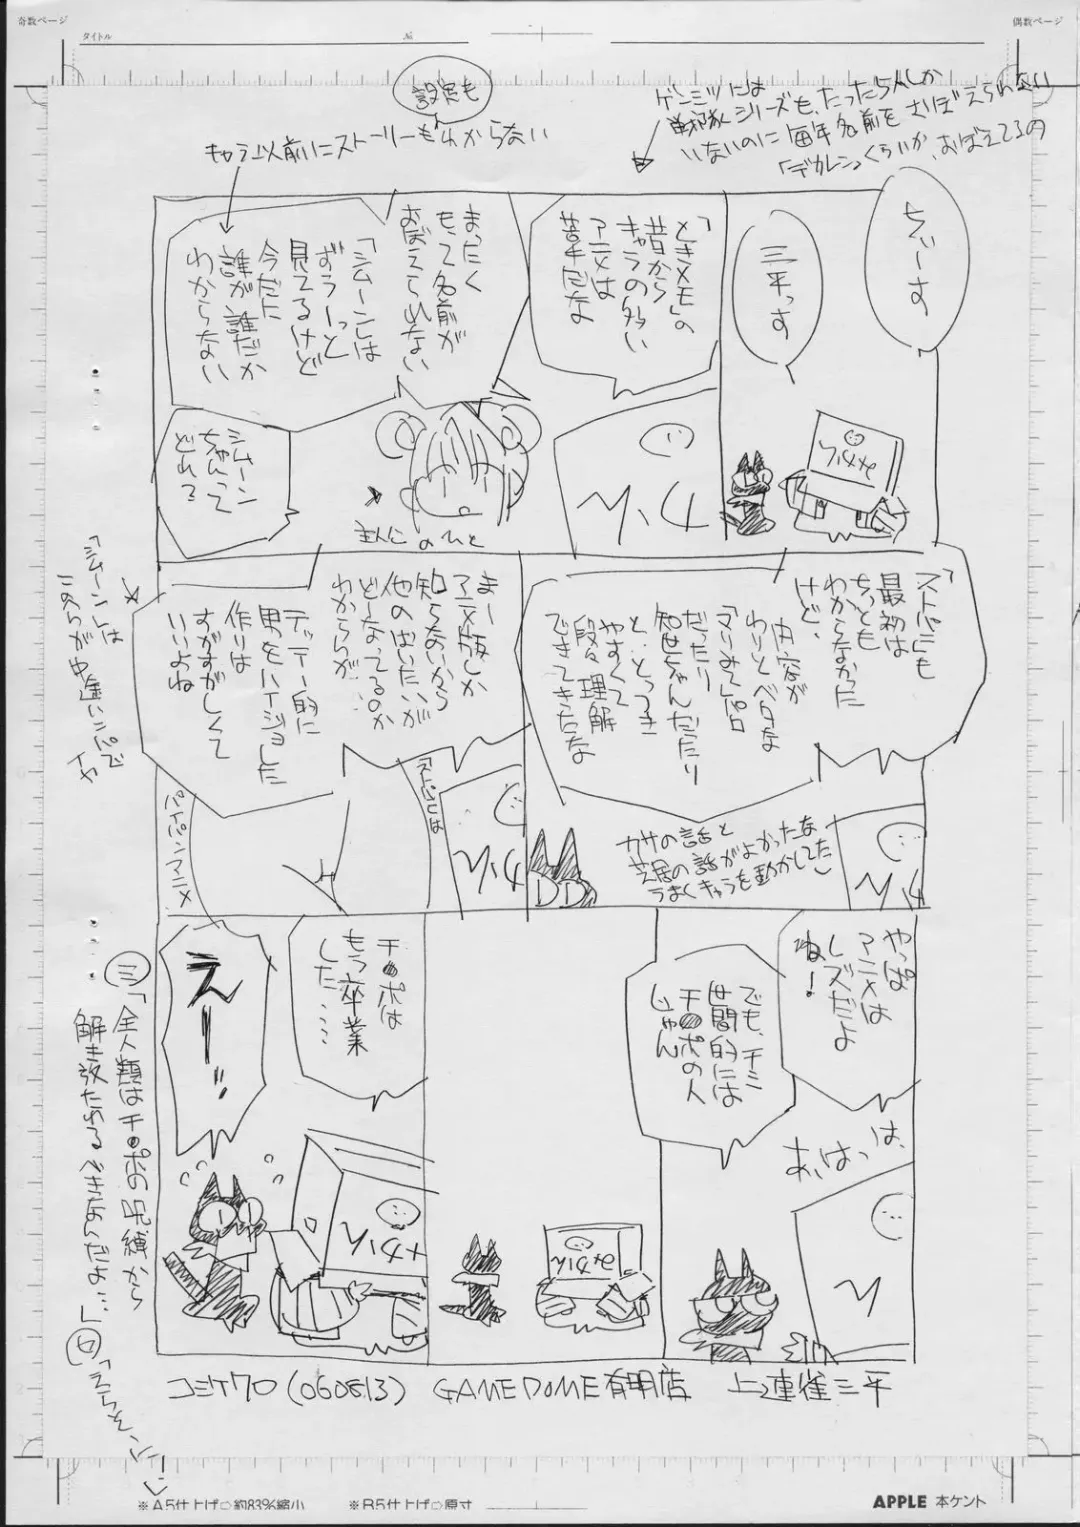 奇数ページ
偶数ページ
タイトル
№
設定も
キャラ以前にストーリーもわからない
ゲンミツには
戦隊シリーズも、たった5人しか
いないのに毎年名前をおぼえられない
「デカレン」くらいか、おぼえてるの
ちぃーす
三平っす
「ときメモ」の
昔から
キャラの多い
アニメは
苦手だな
まったく
もって名前が
おぼえられない
「シムーン」は
ずうーっと
見てるけど
今だに
誰が誰だか
わからない
シムーン
ちゃんって
どれ?
主人公のひと
みかん
「ストパニ」も
最初は
ちっとも
わからなかった
けど、
内容が
わりとベタな
「マリみて」パロ
だったり
知世ちゃんだったり
と、とっつき
やすくて
段々理解
できてきたな
カサの話と
芝居の話がよかったな
うまくキャラを動かしてた
まー
アニメ版しか
知らないから
他のばいたいが
どーなってるか
わからんが…
テッテー的に
男をハイジョした
作りは
すがすがしくて
いいよね
「シムーン」は
このへんが中途ハンパで
イヤ
ストパニは
パイパンアニメ
やっぱ
アニメは
レズだよ
ね!
あ、はっは、
でも、チミ
世間的には
チ●ポの人
じゃん
みかん
チ●ポは
もう卒業
した……
えーっ
みかん
三「全人類はチ●ポの呪縛から
解き放たれるべきなんだよ…」
コミケ70(060813) GAMEDOME有明店 上連雀三平
※A5仕上げ⇨約83%縮小
※B5仕上げ⇨原寸
APPLE 本ケント